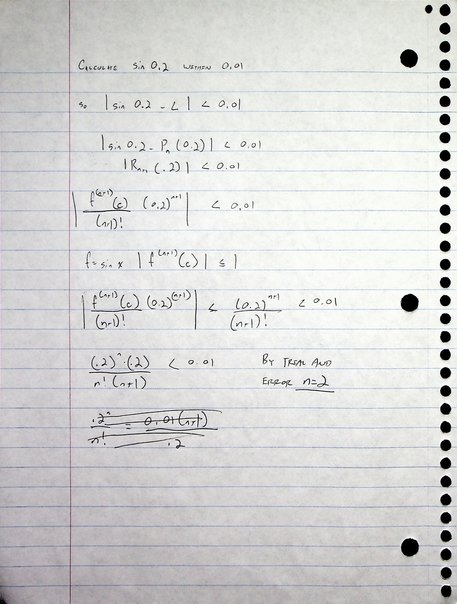 CALCULATE sin 0.2 WITHIN 0.01
so | sin 0.2 - L | < 0.01
| sin 0.2 - Pₙ (0.2) | < 0.01
| Rₙ₊₁ (.2) | < 0.01
| f⁽ⁿ⁺¹⁾(c) / (n+1)! (0.2)ⁿ⁺¹ | < 0.01
f = sin x | f⁽ⁿ⁺¹⁾(c) | ≤ 1
| f⁽ⁿ⁺¹⁾(c) / (n+1)! (0.2)⁽ⁿ⁺¹⁾ | ≤ (0.2)ⁿ⁺¹ / (n+1)! < 0.01
(.2)ⁿ·(.2) / n! (n+1) < 0.01 BY TRIAL AND
ERROR n=2
.2ⁿ / n! = 0.01(n+1) / .2